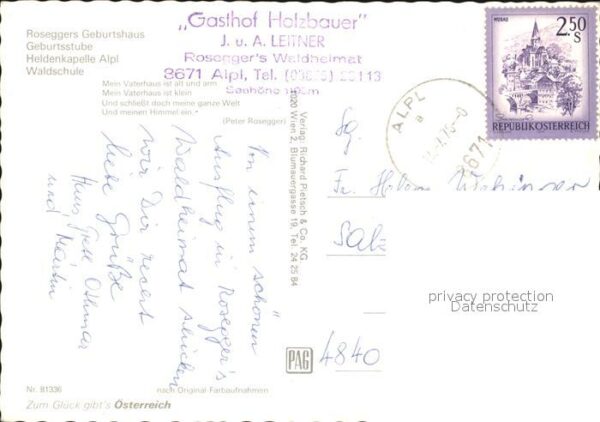 Roseggers Geburtshaus
Geburtsstube
Heldenkapelle Alpl
Waldschule
„Gasthof Holzbauer"
J. u. A. LEITNER
Rosegger's Waldheimat
8671 Alpl, Tel.
Seehöhe
Mein Vaterhaus ist alt und arm
Mein Vaterhaus ist klein
Und schließt doch meine ganze Welt
Und meinen Himmel ein.
(Peter Rosegger)
Von einem schönen
Ausflug in Rosegger's
Waldheimat schicken
wir Dir recht
liebe Grüße
Hans Othmar
und Martin
Verlag: Richard Pietsch & Co. KG
1020 Wien 2, Blumauergasse 19, Tel. 24 25 84
MURAU
2.50
S
REPUBLIK ÖSTERREICH
ALPL
8671
Fr.
4840
PAG
privacy protection
Datenschutz
Nr. 81336
nach Original-Farbaufnahmen
Zum Glück gibt's Österreich